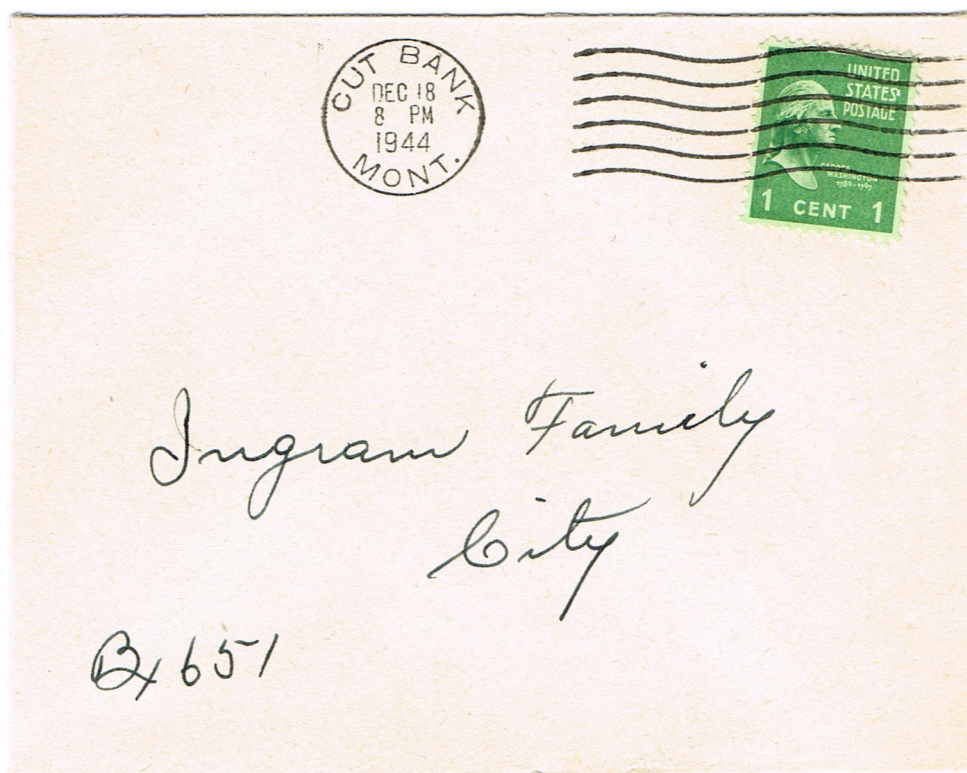 CUT BANK
DEC 18
8 PM
1944
MONT.
UNITED
STATES
POSTAGE
GEORGE
WASHINGTON
1789-1797
1 CENT 1
Ingram Family
City
Bx 651